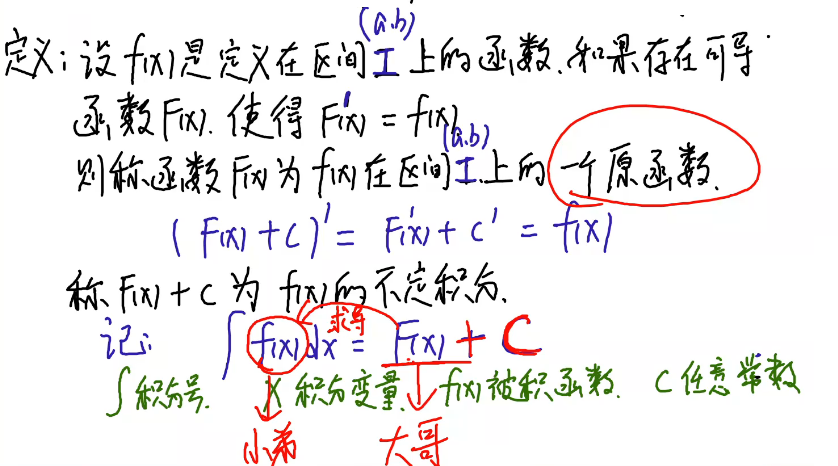 (a.b)
定义:设f(x)是定义在区间I上的函数.如果存在可导
函数F(x).使得F'(x)=f(x)
(a.b)
则称函数F(x)为f(x)在区间I上的一个原函数.
(F(x)+C)'=F'(x)+C'=f(x)
称F(x)+C为f(x)的不定积分.
记:∫f(x)dx=F(x)+C
求导
∫积分号. X积分变量. f(x)被积函数. C任意常数
小弟 大哥